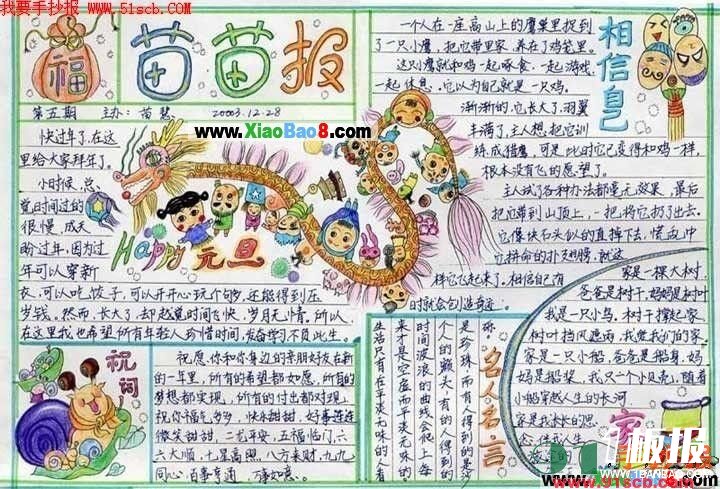 我要手抄报 www.51scb.com
福
苗苗报
第五期 主办：苗慧 2003.12.28
www.XiaoBao8.com
快过年了，在这
里给大家拜年了。
小时候，总
觉时间过的
很慢，成天
盼过年，因为过
年可以穿新
衣，可以吃饺子，可以开开心玩个够，还能得到压
岁钱。然而，长大了，却越觉时间飞快，岁月无情。所以，
在这里我也希望所有年轻人珍惜时间，发奋学习不负此生。
Happy 元旦
相信自己
一个人在一座高山上的鹰巢里捉到
了一只小鹰，把它带里家，养在了鸡笼里。
这只鹰就和鸡一起啄食，一起游戏，
一起休息，它以为自己就是一只鸡。
渐渐的，它长大了，羽翼
丰满了，主人想把它训
练成猎鹰，可是，此时它已变得和鸡一样，
根本没有飞的愿望了。
主人试了各种办法都毫无效果，最后
把它带到山顶上，一把将它扔了出去。
它像块石头似的直掉下去，慌乱中
它拼命的扑支翅膀，就这
样它飞起来了。相信自有
时就会创造奇迹。
祝词
祝愿你和你身边的亲朋好友在新
的一年里，所有的希望都如愿，所有的
梦想都实现，所有的付出都对现。
祝你福气多多，快乐甜甜，好事连连
微笑甜甜，一花平安，五福临门，六
六大顺，七星高照，八方来财，九九
同心，百事亨通，万事如意。
名人名言
是珍珠，而有人得到的是沙
个人的额头，有的人得到的
时间波浪的曲线会爬上每
来才是空虚而平淡无味的。
生活只有在平淡无味的人看
家
家是一棵大树，
爸爸是树干，妈妈是树枝
我是一只小鸟，树干撑起家
树叶挡风遮雨，我觉我们的家
家是一只小船，爸爸是船身，妈
妈是船桨，我只一个小贝壳，随着
小船穿越人生的长河
家是我永长的思
念，伴我人生
板报
www.1PANBAO.com